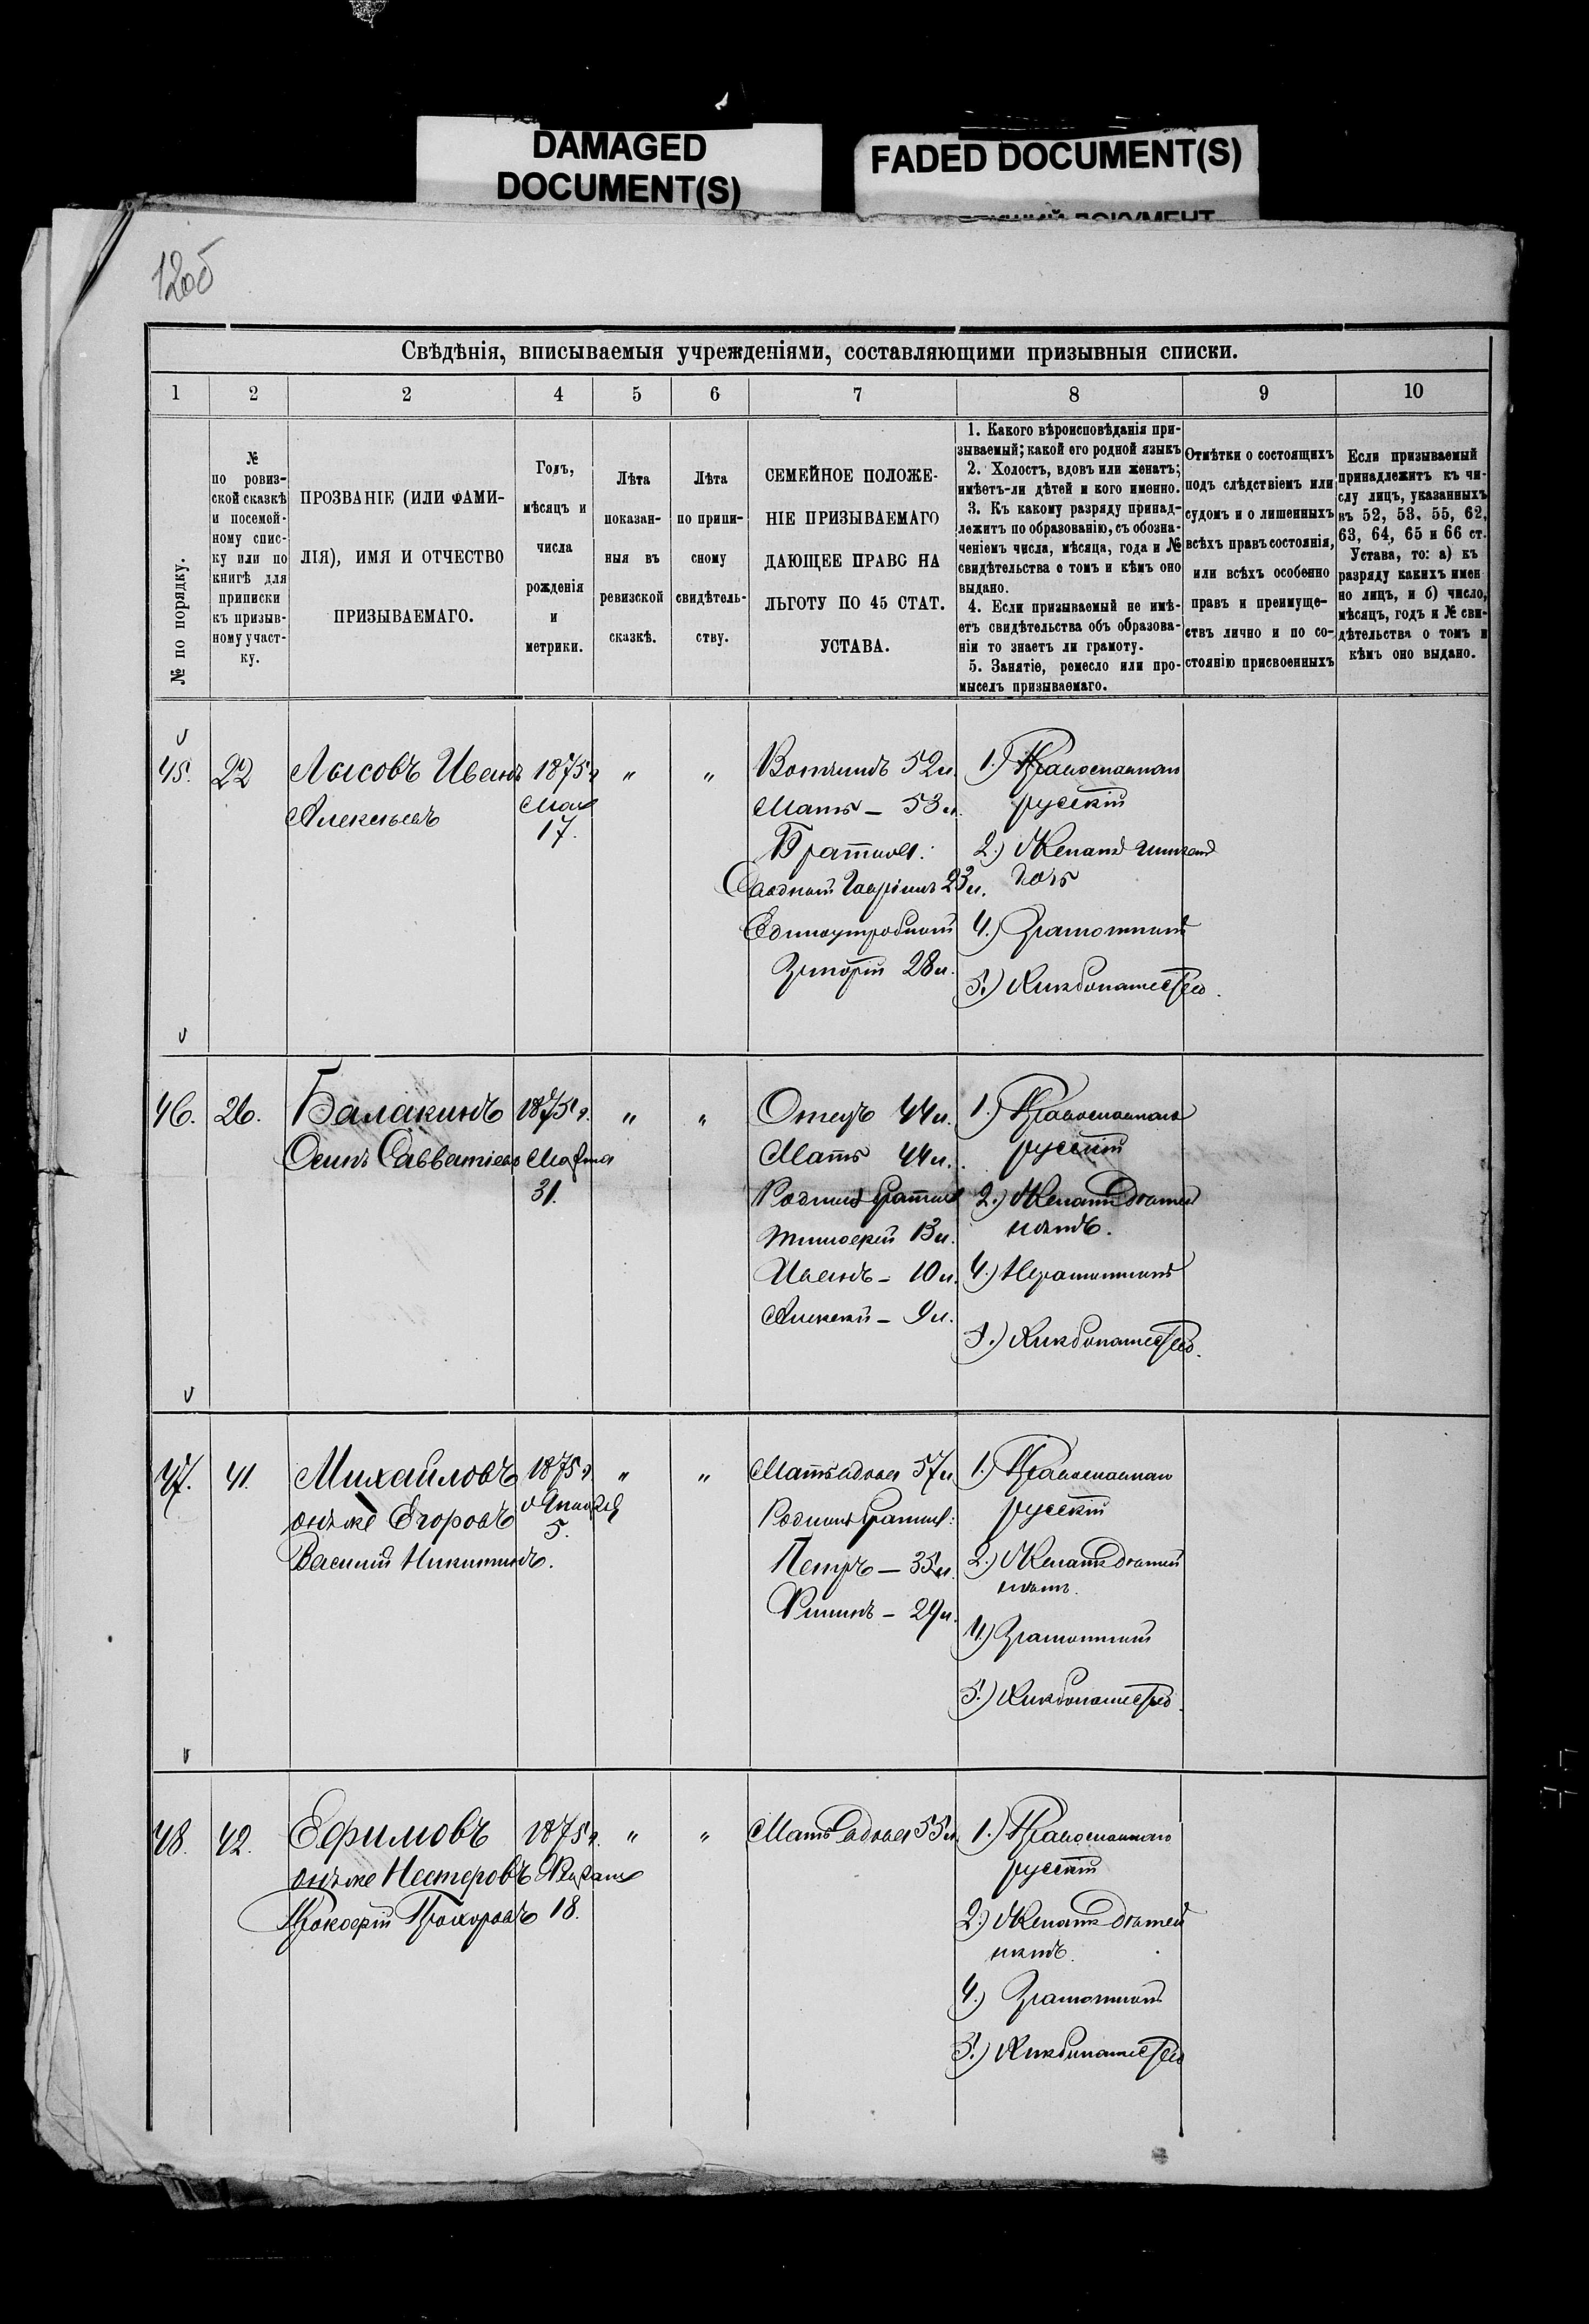 DAMAGED
DOCUMENT(S)
FADED DOCUMENT(S)
ДОКУМЕНТ
12об
Свѣдѣнія, вписываемыя учрежденіями, составляющими призывныя списки.
1 2 2 4 5 6 7 8 9 10
№ по порядку.
№
по ровиз-
ской сказкѣ
и посемей-
ному спис-
ку или по
книгѣ для
приписки
къ призыв-
ному участ-
ку.
ПРОЗВАНІЕ (ИЛИ ФАМИ-
ЛІЯ), ИМЯ И ОТЧЕСТВО
ПРИЗЫВАЕМАГО.
Годъ,
мѣсяцъ и
числа
рожденія
и
метрики.
Лѣта
показан-
ныя въ
ревизской
сказкѣ.
Лѣта
по припи-
сному
свидѣтель-
ству.
СЕМЕЙНОЕ ПОЛОЖЕ-
НІЕ ПРИЗЫВАЕМАГО
ДАЮЩЕЕ ПРАВС НА
ЛЬГОТУ ПО 45 СТАТ.
УСТАВА.
1. Какого вѣроисповѣданія при-
зываемый; какой его родной языкъ
2. Холостъ, вдовъ или женатъ;
имѣетъ-ли дѣтей и кого именно.
3. Къ какому разряду принад-
лежитъ по образованію, съ обозна-
ченіемъ числа, мѣсяца, года и №
свидѣтельства о томъ и кѣмъ оно
выдано.
4. Если призываемый не имѣ-
етъ свидѣтельства объ образова-
ніи то знаетъ ли грамоту.
5. Занятіе, ремесло или про-
мыселъ призываемаго.
Отмѣтки о состоящихъ
подъ слѣдствіемъ или
судомъ и о лишенныхъ
всѣхъ правъ состоянія,
или всѣхъ особенно
правъ и преимуще-
ствъ лично и по со-
стоянію присвоенныхъ
Если призываемый
принадлежитъ къ чи-
слу лицъ, указанныхъ
въ 52, 53, 55, 62,
63, 64, 65 и 66 ст.
Устава, то: а) къ
разряду какихъ имен
но лицъ, и б) число,
мѣсяцъ, годъ и № сви-
дѣтельства о томъ и
кѣмъ оно выдано.
45. 22
Лысовъ Иванъ
Алексѣевъ
1875 г
Мая
17.
" "
Вотчимъ 52 л.
Мать — 53 л.
Братья:
Сводный Гаврiилъ 23 л.
Единоутробный
Григорій 28 л.
1.) Православнаго
русскій
2.) Женатъ имѣетъ
дочь
4.) Грамотный
5.) Хлѣбопашество.
46. 26.
Балакинъ
Осипъ Савватіевъ
1875 г.
Марта
31.
" "
Отецъ 44 л.
Мать 44 л.
Родныя братья
Тимоѳей 13 л.
Иванъ — 10 л.
Алексѣй — 9 л.
1.) Православнаго
русскій
2.) Женатъ дѣтей
нѣтъ.
4.) Неграмотный
5.) Хлѣбопашество.
47. 41.
Михайловъ
онъ же Егоровъ
Василій Никитинъ.
1875 г
Января
5.
" "
Мать вдова 57 л
Родныя братья:
Петръ — 35 л.
Филипъ — 29 л.
1.) Православнаго
русскій
2.) Женатъ дѣтей
нѣтъ.
4.) Грамотный
5.) Хлѣбопашество.
48. 42.
Ефимовъ
онъ же Нестеровъ
Прокофій Прохоровъ
1875 г.
Января
18.
" "
Мать вдова 55 л
1.) Православнаго
русскій
2.) Женатъ дѣтей
нѣтъ.
4.) Грамотный
5.) Хлѣбопашество